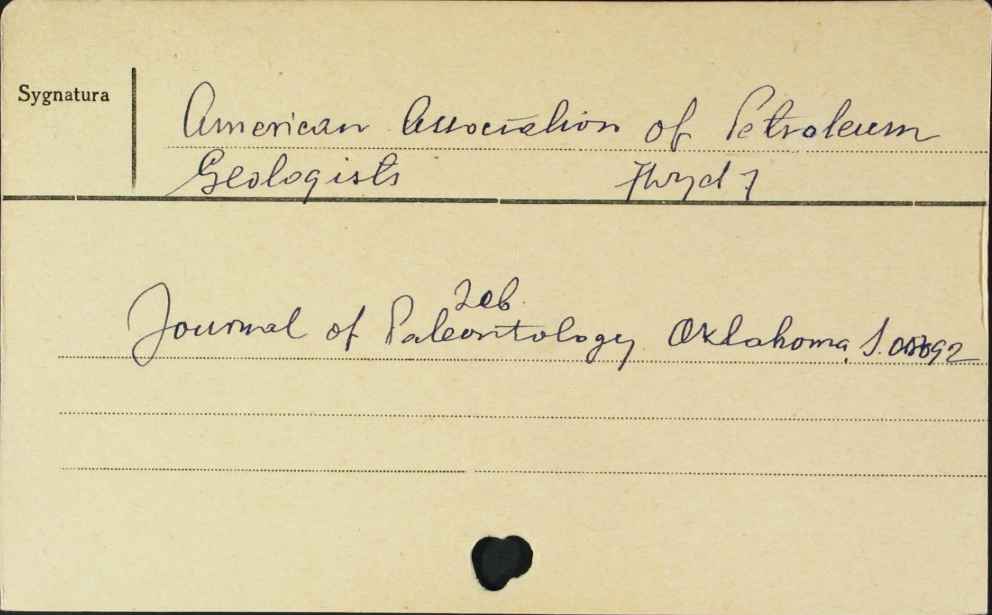 Sygnatura
American Association of Petroleum
Geologists
Zob.
Journal of Paleontology. Oklahoma,